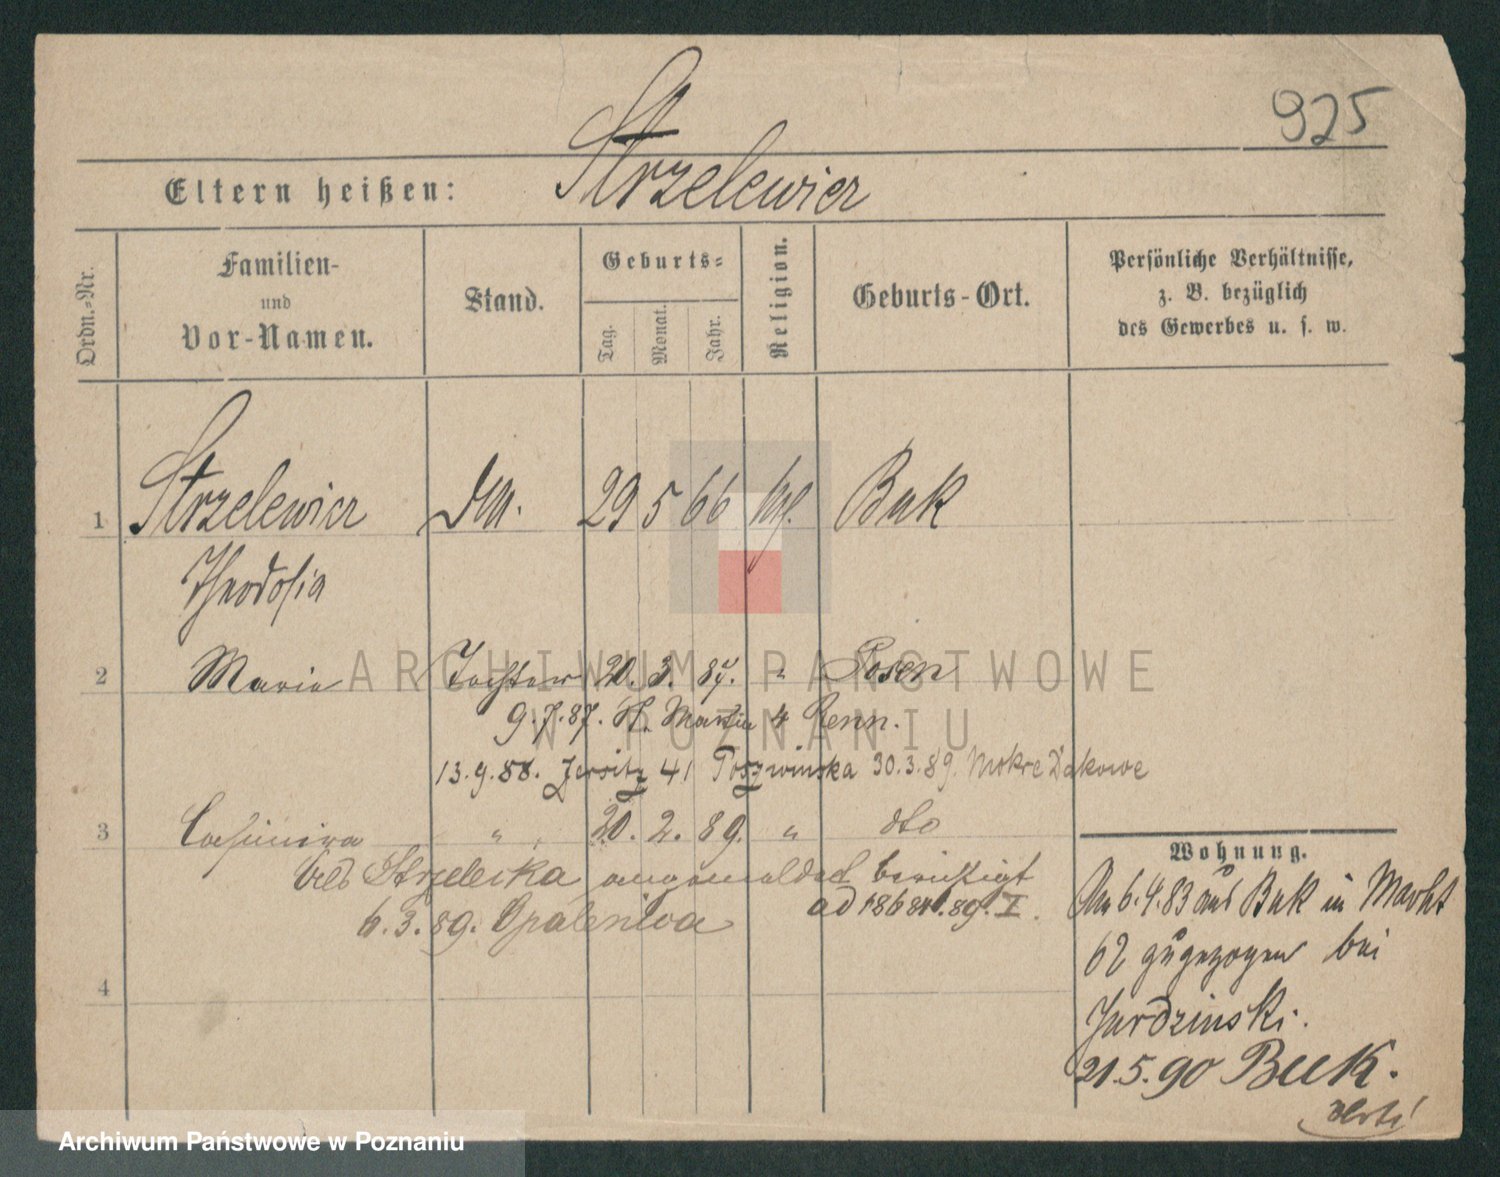 925
Strzelewicz
Eltern heißen:
Ordn.-Nr.
Familien- und Vor-Namen.
Stand.
Geburts-
Tag.
Monat.
Jahr.
Religion.
Geburts-Ort.
Persönliche Verhältnisse,
z. B. bezüglich
des Gewerbes u. s. w.
1 Strzelewicz 29 5 66 Buk
Theodosia
2 Marie Tochter 20. 3. 87. " Posen
9.7.87. St. Martin 4 Renn.
13.9.88. Jersitz 41 30.3.89. Mokre Dakowe
3 Casimira " 20. 2. 89. " dto
Strzelecka angemeldet berichtigt
6.3.89. Opalenica ad .89. I.
4
Wohnung.
Am 6.4.83 aus Buk in Markt
62 zugezogen bei
Jurdzinski.
21.5.90 Buk.
ARCHIWUM PAŃSTWOWE
W POZNANIU
Archiwum Państwowe w Poznaniu